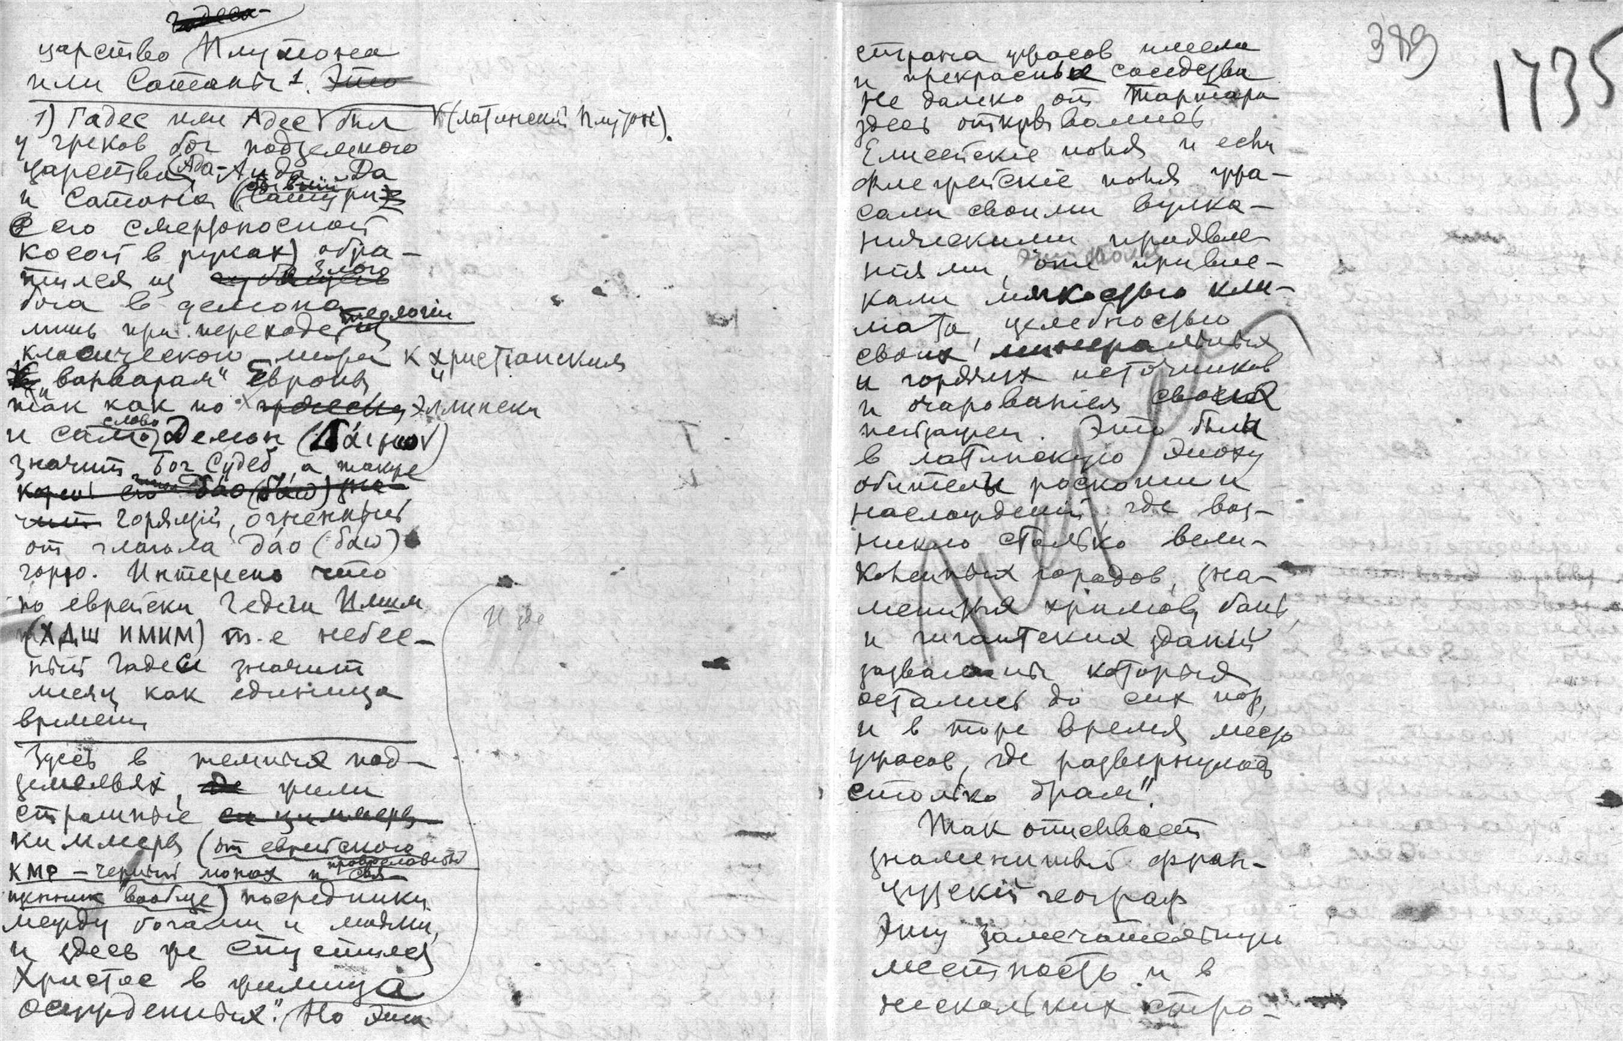 царство Плутона
или Сатаны 1.
1) Гадес или Адес был V (латинский Плутон).
у греков бог подземного
царства Ада-Аида. Да
и Сатана
с его смертоносной
косой в руках) обра-
тился из злого
бога в демона
лишь при переходе теологии
класического мира к христианским
"варварам" Европы
так как по эллински
и само слово Демон (Δαίμων)
значит Бог Судеб, а также
горящий, огненный
от глагола дао (δαω)
горю. Интересно что
по еврейски
(ХДШ ИМИМ) т.е небес-
ный Гадес значит
месяц как единица
времени
Здесь в темных под-
земельях, жили
страшные
киммеры (от еврейского
КМР – черный монах и православный свя-
щенник вообще) посредники
между богами и людьми,
и здесь же спустился
Христос в жилища
осужденных". Но эта
389
1735
страна ужасов имела
и прекрасные соседства
Не далеко от Тартара
здесь открывались
Елисейскіе поля и если
Флегрейскіе поля ужа-
сали своими вулка-
ническими проявле-
ниями, они привле-
кали мягкостью кли-
мата, целебностью
своих минеральных
и горячих источников
и очарованіем своих
пейзажей. Это были
в латинскую эпоху
обители роскоши и
наслаждений где воз-
никло столько вели-
колепных городов, зна-
менитых храмов, бань,
и гигантских зданий
развалины которых
остались до сих пор,
и в тоже время место
ужасов, где развернулось
столько драм".
Так описывает
знаменитый фран-
цузскій географ
эту замечательную
местность и в
нескольких стро-